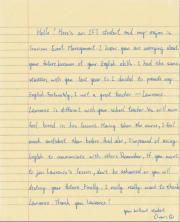 Hello! Here's an IFT student and my major is
Tourism Event Management. I know you are worrying about
your future because of your English skills. I had the same
situation with you last year so I decided to promote my
English. Fortunately, I met a great teacher — Lawrence.
Lawrence is different with your school teacher. You will never
feel bored in his lessons. Having taken the course, I feel
much confident than before. And also, I'm proud of using
English to communicate with others. Remember, if you want
to join Lawrence's lesson, don't be ashamed or you will
destroy your future. Finally, I really really want to thank
Lawrence. Thank you Lawrence!
your brilliant student,